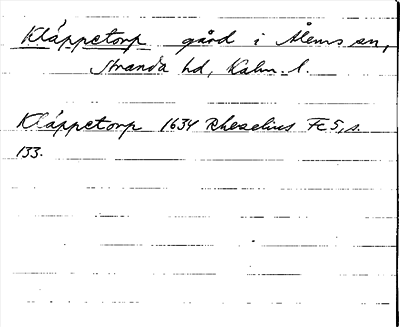 Kläppetorp gård i Ålems sn,
Stranda hd, Kalm. l.
Kläppetorp 1634 Rhezelius Fc5, s.
133.